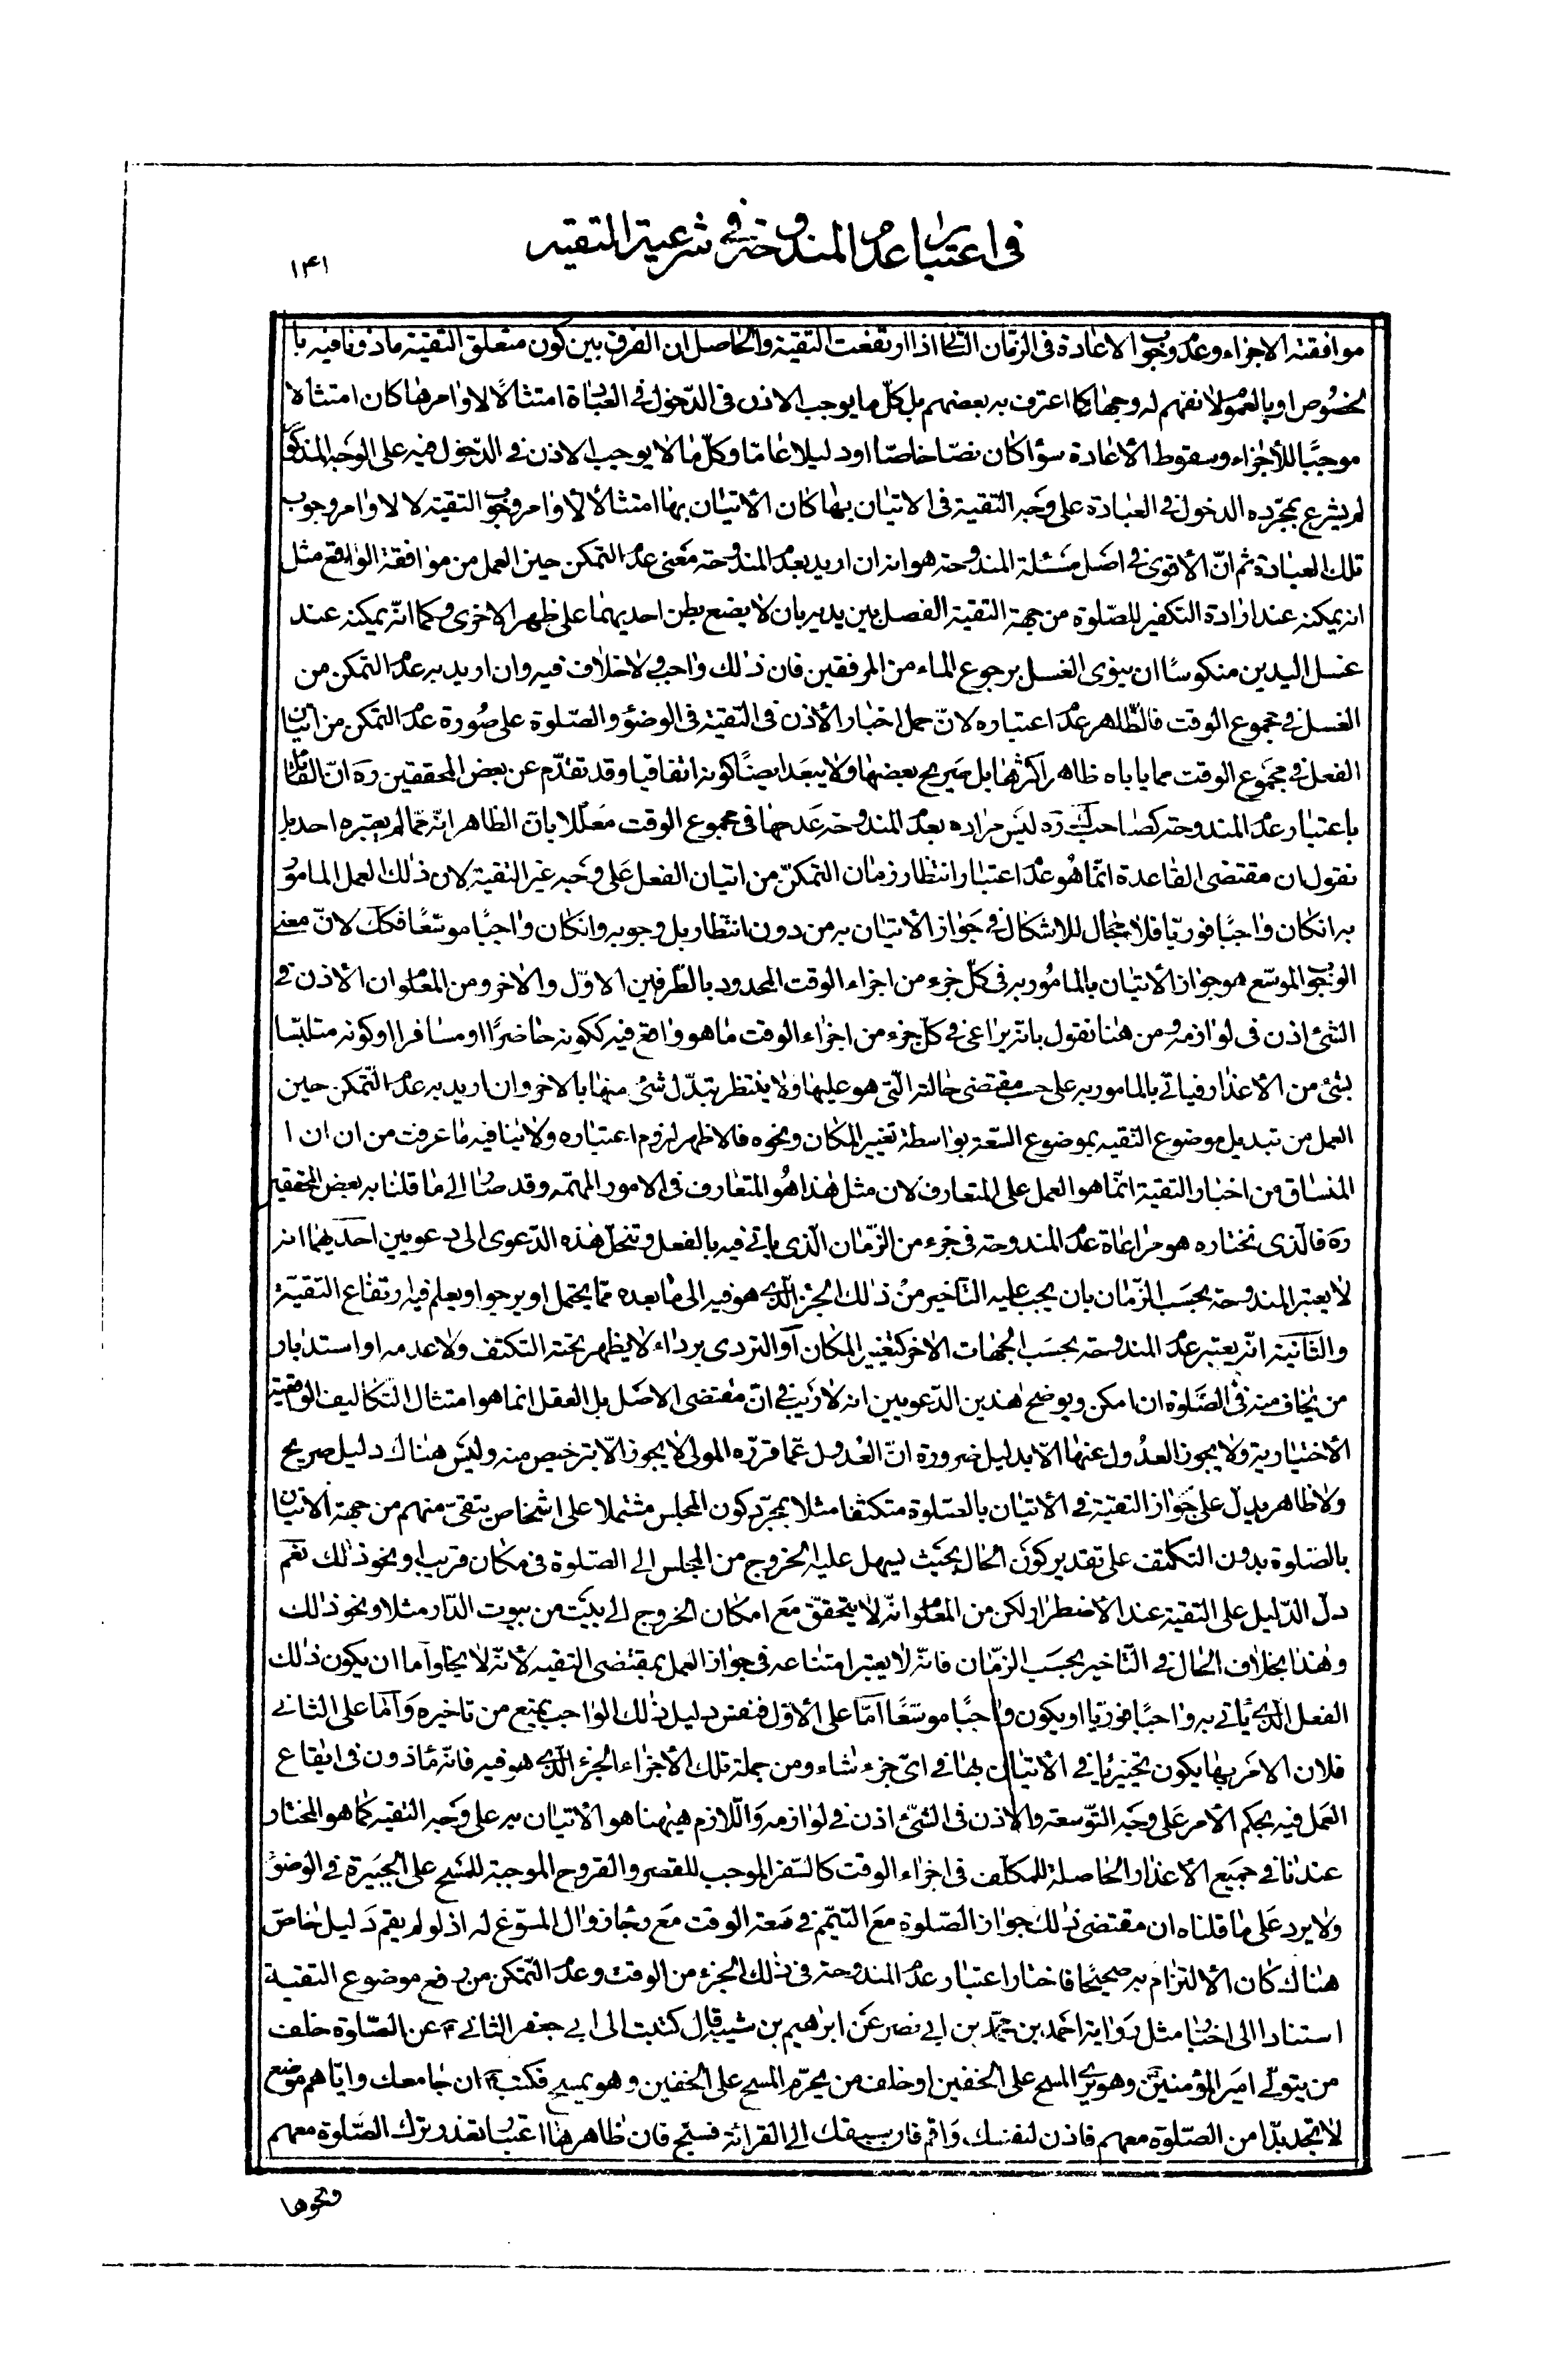 في اعتبار عدم المندوحة في شرعية التقية
۱۴۱
موافقته الاجزاء وعدم وجوب الاعادة فى الزمان الثانى اذا ارتفعت التقية والحاصل ان الفرق بين كون متعلق التقية ماذونا فيه با
لخصوص او بالعموم لا نفهم له وجها كما اعترف به بعضهم بل كلّ ما يوجب الاذن فى الدّخول فى العبادة امتثالا لاوامرها كان امتثالا
موجبًا للأجزاء وسقوط الأعادة سواء كان نصّا خاصّا او دليلا عامّا وكلّ ما لا يوجب الاذن فى الدّخول فيه على الوجه المذكور
لم يشرع بمجرّده الدخول فى العبادة على وجه التّقية فى الاتيان بها كان الأتيان بها امتثالا لأوامر وجوب التقية لا لاوامر وجوب
تلك العبادة ثم انّ الأقوى فى اصل مسئلة المندوحة هو انه ان اريد بعدم المندوحة معنى عدم التمكن حين العمل من موافقة الواقع مثل
انه يمكنه عند ارادة التكفير للصّلوة من جهة التقية الفصل بين يديه بان لا يضع بطن احديهما على ظهر الاخرى وكما انّه يمكنه عند
غسل اليدين منكوسًا ان ينوى الغسل برجوع الماء من المرفقين فان ذلك واجب ولا خلاف فيه وان اريد به عدم التمكن من
الغسل فى مجموع الوقت فالظّاهر عدم اعتباره لانّ حمل اخبار الأذن فى التّقية فى الوضوء والصّلوة على صورة عدم التمكن من اتيان
الفعل فى مجموع الوقت مما ياباه ظاهر اكثرها بل صريح بعضها ولا يبعد ايضًا كونه اتفاقيا وقد تقدّم عن بعض المحققين ره انّ القائل
باعتبار عدم المندوحة كصاحب ك ره ليس مراده بعدم المندوحة عدمها فى مجموع الوقت معلّلا بانّ الظاهر انّه ممّا لم يعتبره احد بل
نقول ان مقتضى القاعدة انّما هو عدم اعتبار انتظار زمان التمكنّ من اتيان الفعل على وجه غير التقية لان ذلك العمل المامور
به ان كان واجبًا فوريّا فلا مجال للاشكال فى جواز الأتيان به من دون انتظار بل وجوبه وان كان واجبًا موسّعًا فكك لانّ معنى
الوجوب الموسّع هو جواز الأتيان بالمامور به فى كلّ جزء من اجزاء الوقت المحدود بالطّرفين الاوّل والاخر ومن المعلوم ان الأذن فى
الشئ اذن فى لوازمه ومن هنا نقول بانّه يراعى فى كلّ جزء من اجزاء الوقت ما هو واقع فيه ككونه حاضرًا او مسافرا او كونه متلبّسا
بشئ من الأعذار فياتى بالمامور به على حسب مقتضى حالته الّتى هو عليها ولا ينتظر تبدّل شئ منها بالاخر وان اريد به عدم التّمكن حين
العمل من تبديل موضوع التقيه بموضوع السّعة بواسطة تغيير المكان ونحوه فالاظهر لزوم اعتباره ولا ينافيه ما عرفت من ان ا
المنساق من اخبار التقية انّما هو العمل على المتعارف لان مثل هذا هو المتعارف فى الامور المهمّه وقد صار الى ما قلنا به بعض المحققين
ره فالّذى نختاره هو مراعاة عدم المندوحة فى جزء من الزّمان الّذى ياتى فيه بالفعل وتنحلّ هذه الدّعوى الى دعويين احديهما انه
لا يعتبر المندوحة بحسب الزّمان بان يجب عليه التأخير من ذلك الجزء الّذى هو فيه الى ما بعده ممّا يحتمل او يرجو او يعلم فيه ارتفاع التّقيّة
والثّانية انّه يعتبر عدم المندوحة بحسب الجهات الاخر كتغيير المكان او التردى برداء لا يظهر تحته التكتف ولا عدمه او استدبار
من يخاف منه فى الصّلوة ان امكن ويوضح هذين الدّعويين انه لا ريب فى انّ مقتضى الاصل بل العقل انما هو امتثال التكاليف الواقعية
الأختيارية ولا يجوز العدول عنها الّا بدليل ضرورة انّ العدول عمّا قرّره المولى لا يجوز الّا بترخيص منه وليس هناك دليل صريح
ولا ظاهر يدلّ على جواز التقيّة فى الأتيان بالصّلوة متكتفا مثلا بمجرّد كون المجلس مشتملا على اشخاص يتقى منهم من جهة الاتيان
بالصّلوة بدون التكتّف على تقدير كون الحال بحيث يسهل عليه الخروج من المجلس الى الصّلوة فى مكان قريب او نحو ذلك نعم
دلّ الدّليل على التقية عند الاضطرار لكن من المعلوم انّه لا يتحقّق مع امكان الخروج الى بيت من بيوت الدّار مثلا ونحو ذلك
وهذا بخلاف الحال فى التّاخير بحسب الزّمان فانّه لا يعتبر امتناعه فى جواز العمل بمقتضى التقيه لأنّه لا يخلو امّا ان يكون ذلك
الفعل الّذى يأتى به واجبًا فوريّا او يكون واجبًا موسّعًا امّا على الأوّل فنفس دليل ذلك الواجب يمنع من تاخيره وامّا على الثانى
فلان الامر بها يكون تخييريّا فى الأتيان بها فى اىّ جزء شاء ومن جملة تلك الأجزاء الجزء الّذى هو فيه فانّه مأذون فى ايقاع
العمل فيه بحكم الأمر على وجه التّوسعة والأذن فى الشّئ اذن فى لوازمه والّلازم هيهنا هو الأتيان به على وجه التقيه كما هو المختار
عندنا فى جميع الأعذار الحاصلة للمكلّف فى اجزاء الوقت كالسّفر الموجب للقصر والقروح الموجبة للمسح على الجبيرة فى الوضوء
ولا يرد على ما قلناه ان مقتضى ذلك جواز الصّلوة مع التيمّم فى سعة الوقت مع رجاء زوال المسوّغ له اذ لو لم يقم دليل خاصّ
هناك كان الألتزام به صحيحًا فاختار اعتبار عدم المندوحة فى ذلك الجزء من الوقت وعدم التّمكن من رفع موضوع التقية
استنادا الى اخبار مثل رواية احمد بن محمّد بن ابى نصر عن ابراهيم بن شيبة قال كتبت الى ابى جعفر الثانى ع عن الصّلوة خلف
من يتولّى امير المؤمنين ع وهو يرى المسح على الخفين او خلف من يحرّم المسح على الخفين وهو يمسح فكتب ع ان جامعك وايّاهم موضع
لا تجد بدّا من الصّلوة معهم فاذن لنفسك واقم فان سبقك الى القرائة فسبّح فان ظاهرها اعتبار تعذر ترك الصّلوة معهم
ونحوها